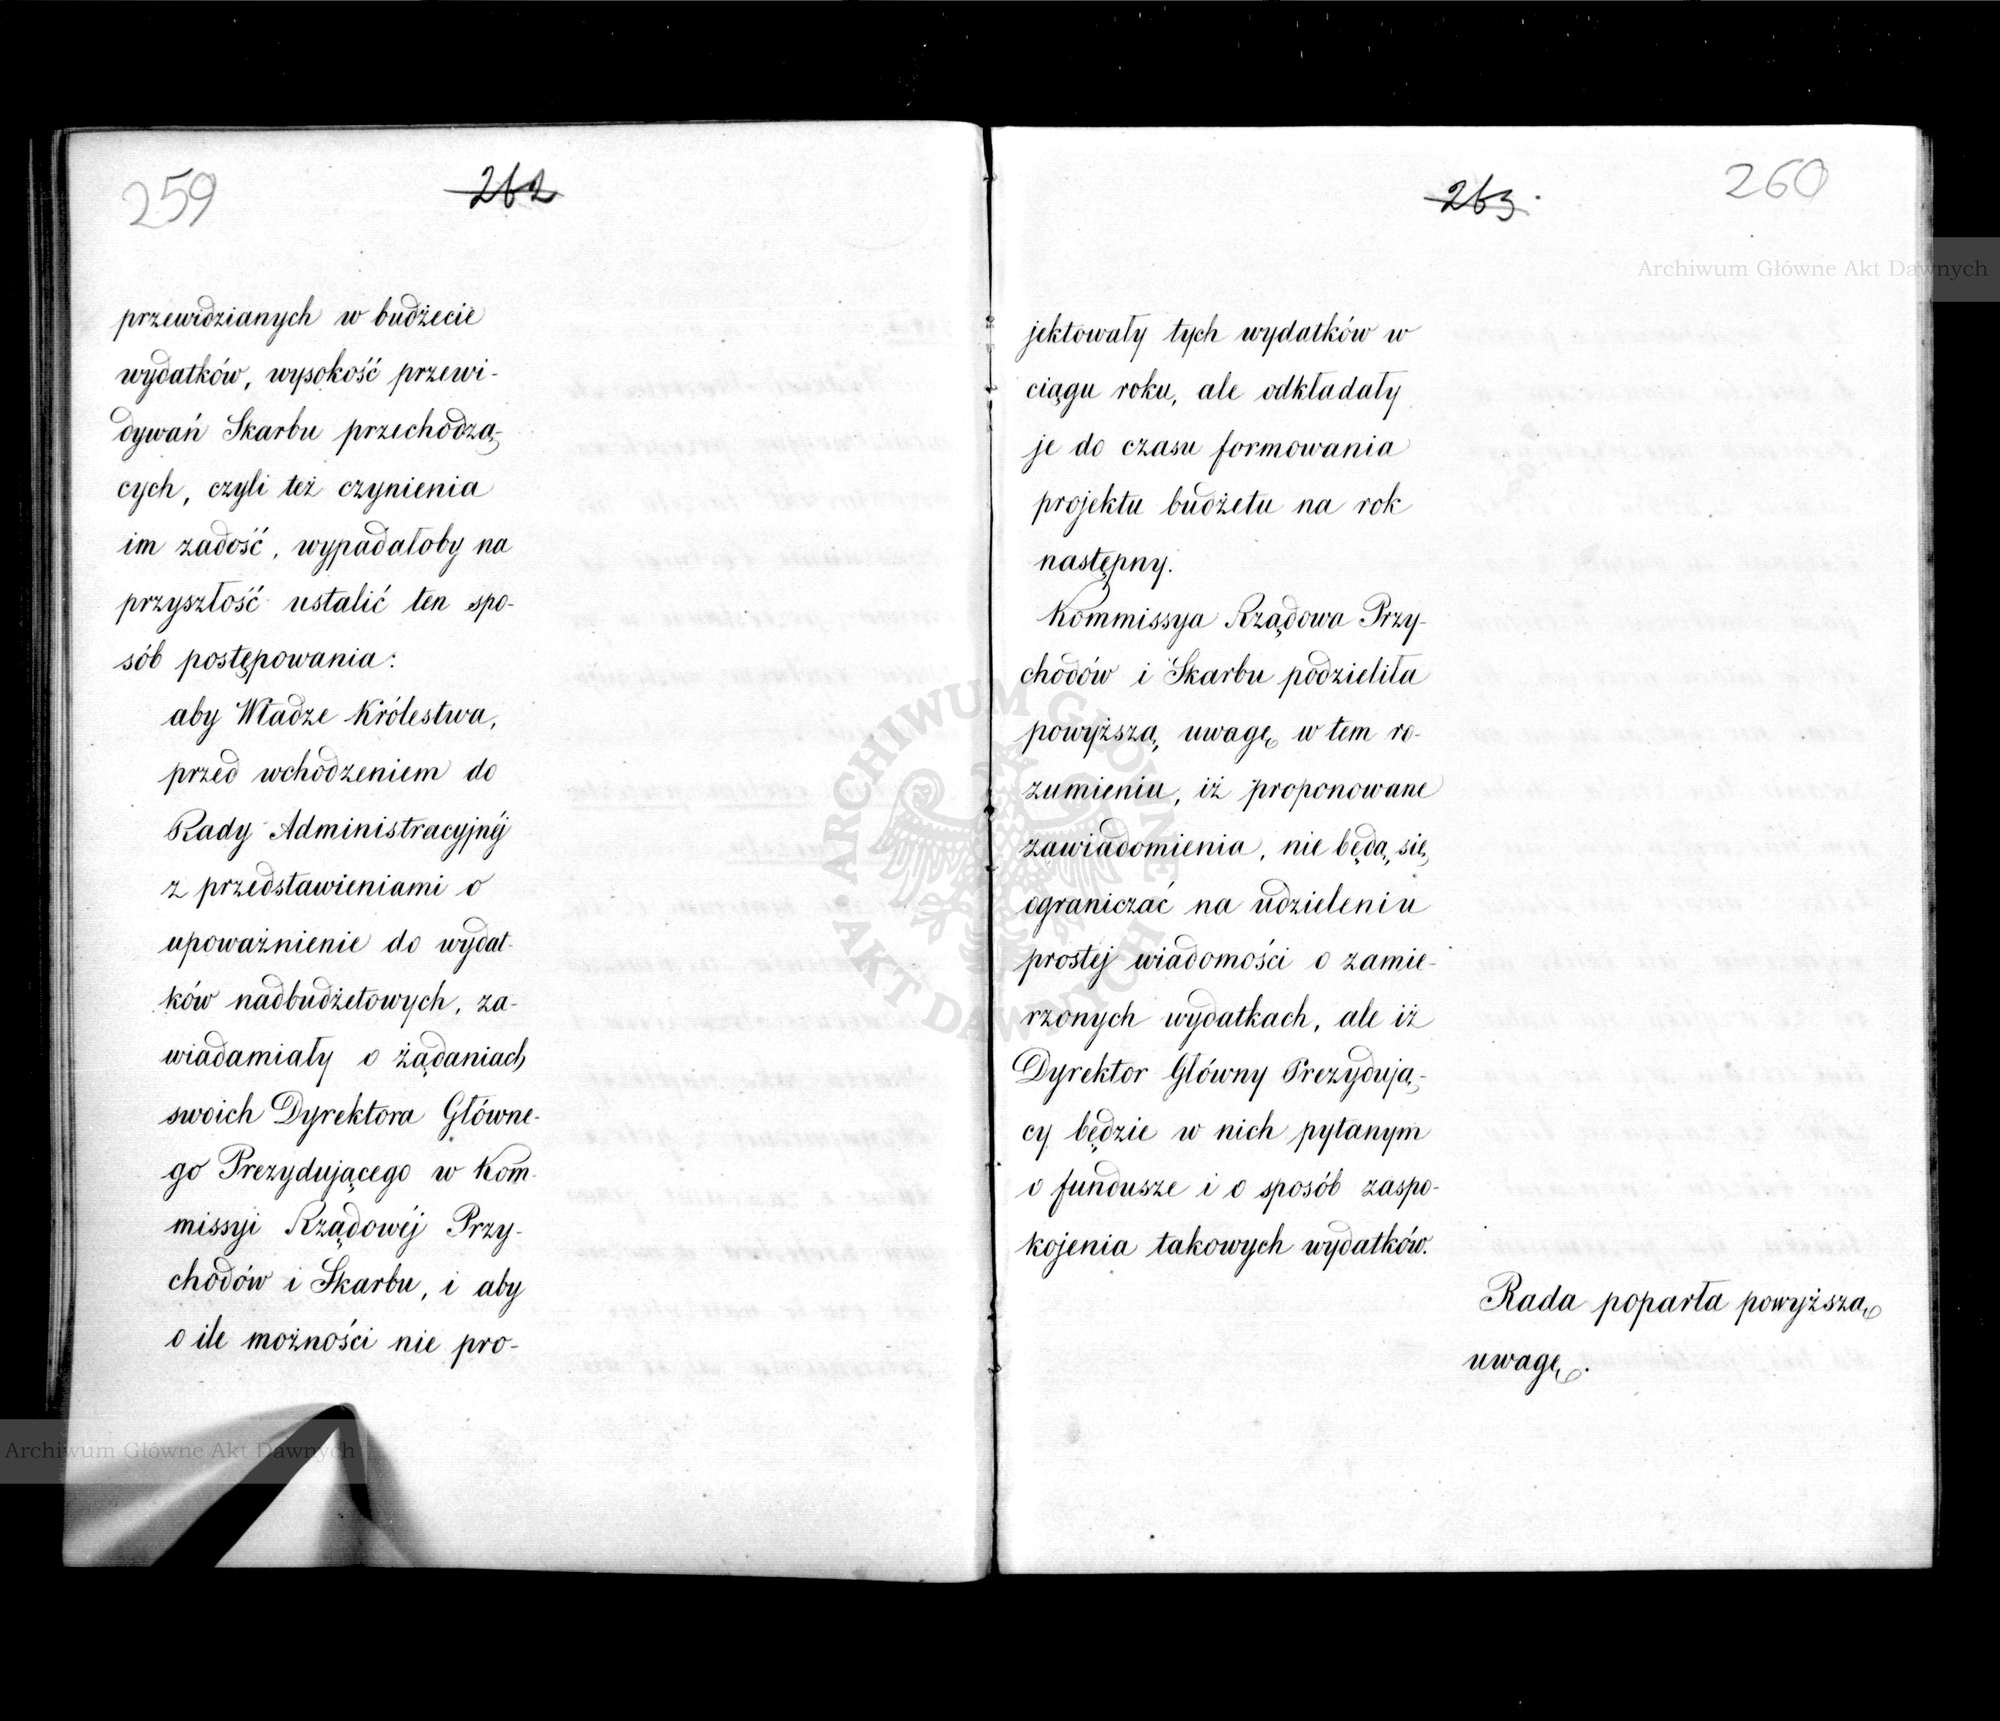 259
262
przewidzianych w budżecie
wydatków, wysokość przewi-
dywań Skarbu przechodzą-
cych, czyli też czynienia
im zadość, wypadałoby na
przyszłość ustalić ten spo-
sób postępowania:
aby Władze Królestwa,
przed wchodzeniem do
Rady Administracyjnéj
z przedstawieniami o
upoważnienie do wydat-
ków nadbudżetowych, za-
wiadamiały o żądaniach
swoich Dyrektora Główne-
go Prezydującego w Kom-
missyi Rządowéj Przy-
chodów i Skarbu, i aby
o ile możności nie pro-
263.
260
jektowały tych wydatków w
ciągu roku, ale odkładały
je do czasu formowania
projektu budżetu na rok
następny.
Kommissya Rządowa Przy-
chodów i Skarbu podzieliła
powyższą uwagę w tem ro-
zumieniu, iż proponowane
zawiadomienia, nie będą się
ograniczać na udzieleniu
prostej wiadomości o zamie-
rzonych wydatkach, ale iż
Dyrektor Główny Prezydują-
cy będzie w nich pytanym
o fundusze i o sposób zaspo-
kojenia takowych wydatków.
Rada poparła powyższą
uwagę.
Archiwum Główne Akt Dawnych
Archiwum Główne Akt Dawnych
ARCHIWUM GŁÓWNE
AKT DAWNYCH